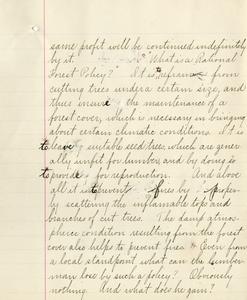 same profit will be continued indefinitely
by it. "What is a Rational
Forest Policy?" It is to refrain from
cutting trees under a certain size, and
thus insure the maintenance of a
forest cover, which is necessary in bringing
about certain climatic conditions. It is
to leave suitable seed trees, which are gener-
ally unfit for lumber and by doing so
to provide for reproduction. And above
all it is to prevent fires by proper-
ly scattering the inflamable tops and
branches of cut trees. The damp atmos-
pheric condition resulting from the forest
cover also helps to prevent fire. Even from
a local standpoint what can the lumber
may lose by such a policy? Obviously
nothing. And what does he gain?